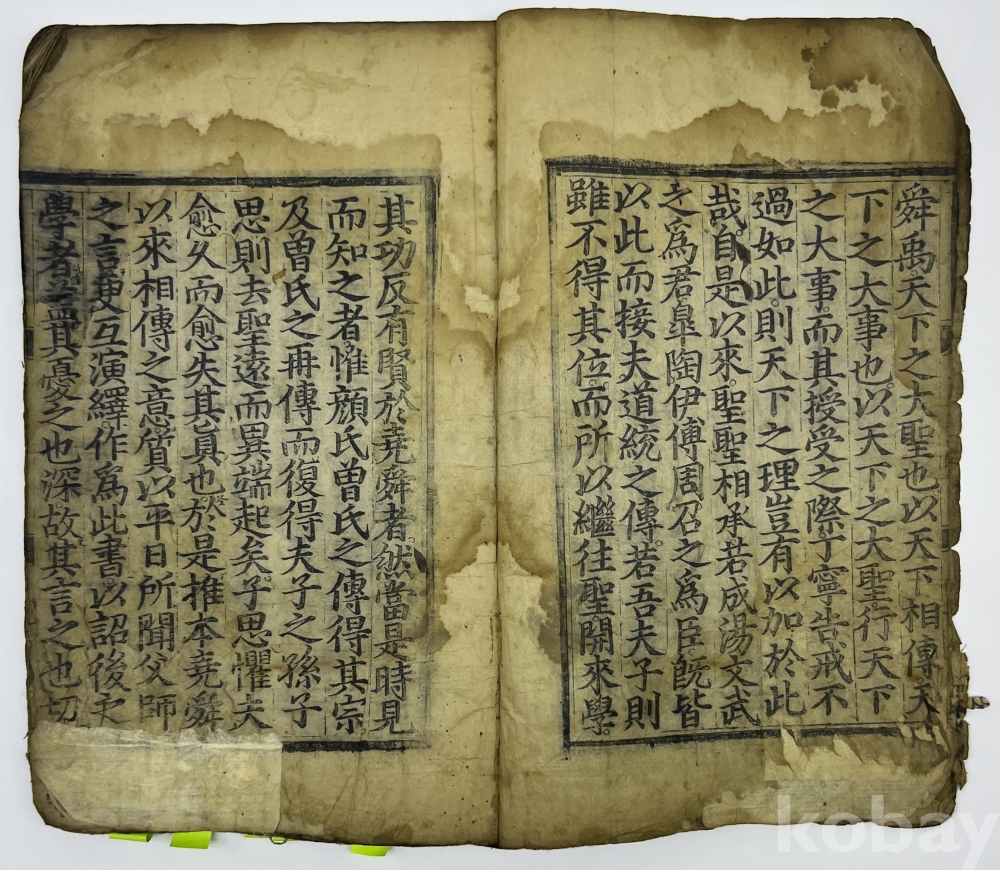 舜禹天下之大聖也以天下相傳天
下之大事也以天下之大聖行天下
之大事而其授受之際丁寧告戒不
過如此則天下之理豈有以加於此
哉自是以來聖聖相承若成湯文武
之爲君皐陶伊傅周召之爲臣旣皆
以此而接夫道統之傳若吾夫子則
雖不得其位而所以繼往聖開來學
其功反有賢於堯舜者然當是時見
而知之者惟顔氏曾氏之傳得其宗
及曾氏之再傳而復得夫子之孫子
思則去聖遠而異端起矣子思懼夫
愈久而愈失其眞也於是推本堯舜
以來相傳之意質以平日所聞父師
之言更互演繹作爲此書以詔後之
學者蓋其憂之也深故其言之也切
kobay